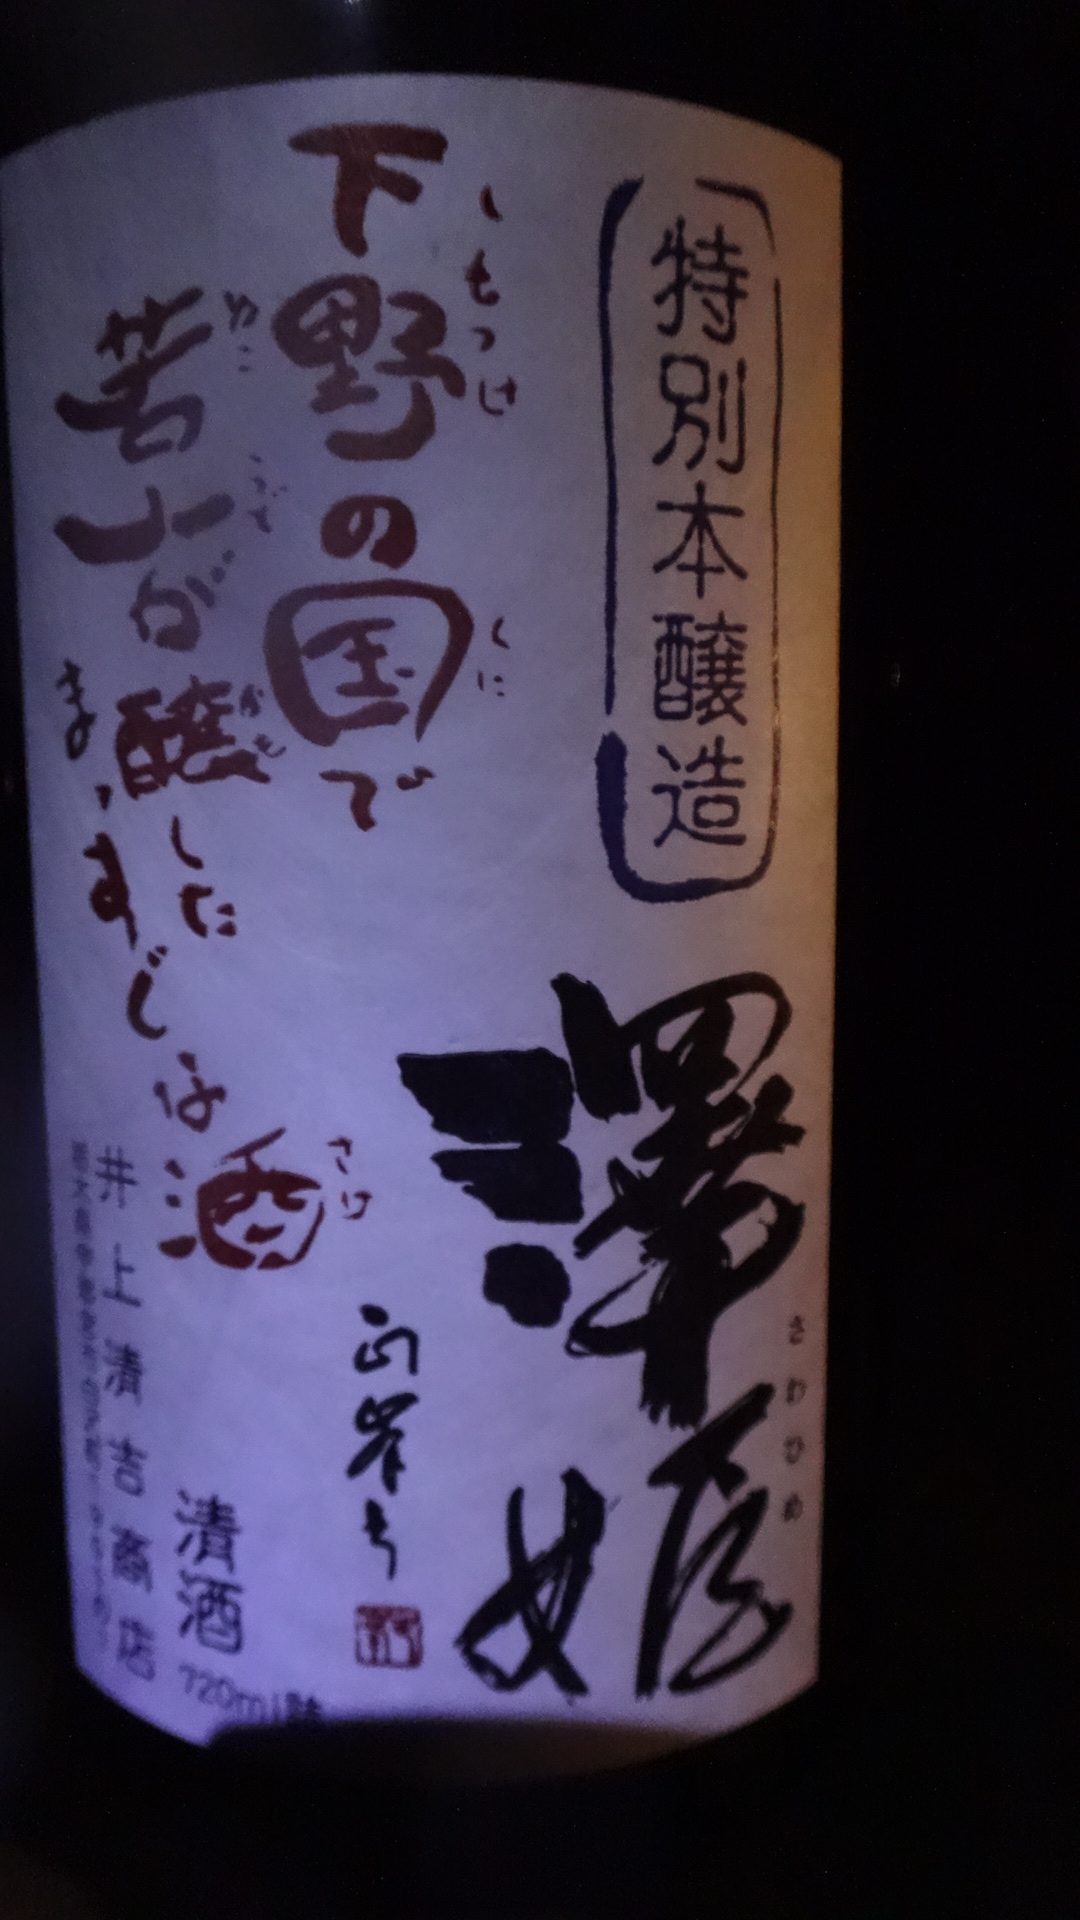 特別本醸造
澤姫
さわひめ
下野の国で
しもつけ
くに
若人が醸した
かも
まじめな酒
さけ
清酒
720ml詰
井上清吉商店